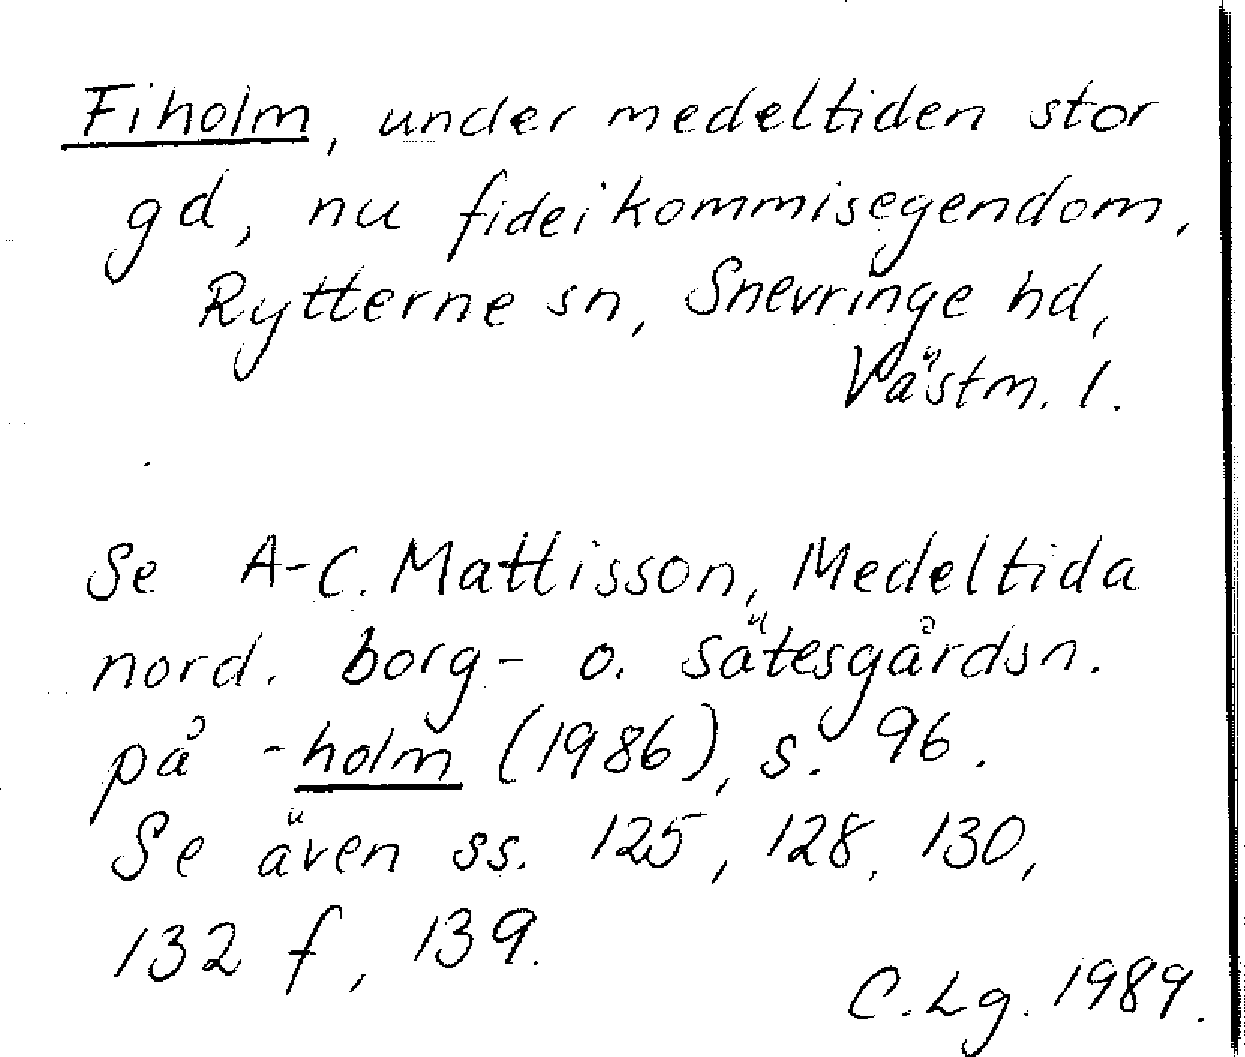 Fiholm, under medeltiden stor
gd, nu fideikommisegendom,
Rytterne sn, Snevringe hd,
Västm. l.
Se A-C. Mattisson, Medeltida
nord. borg- o. sätesgårdsn.
på -holm (1986), s. 96.
Se även ss. 125, 128, 130,
132 f, 139.
C. Lg. 1989.